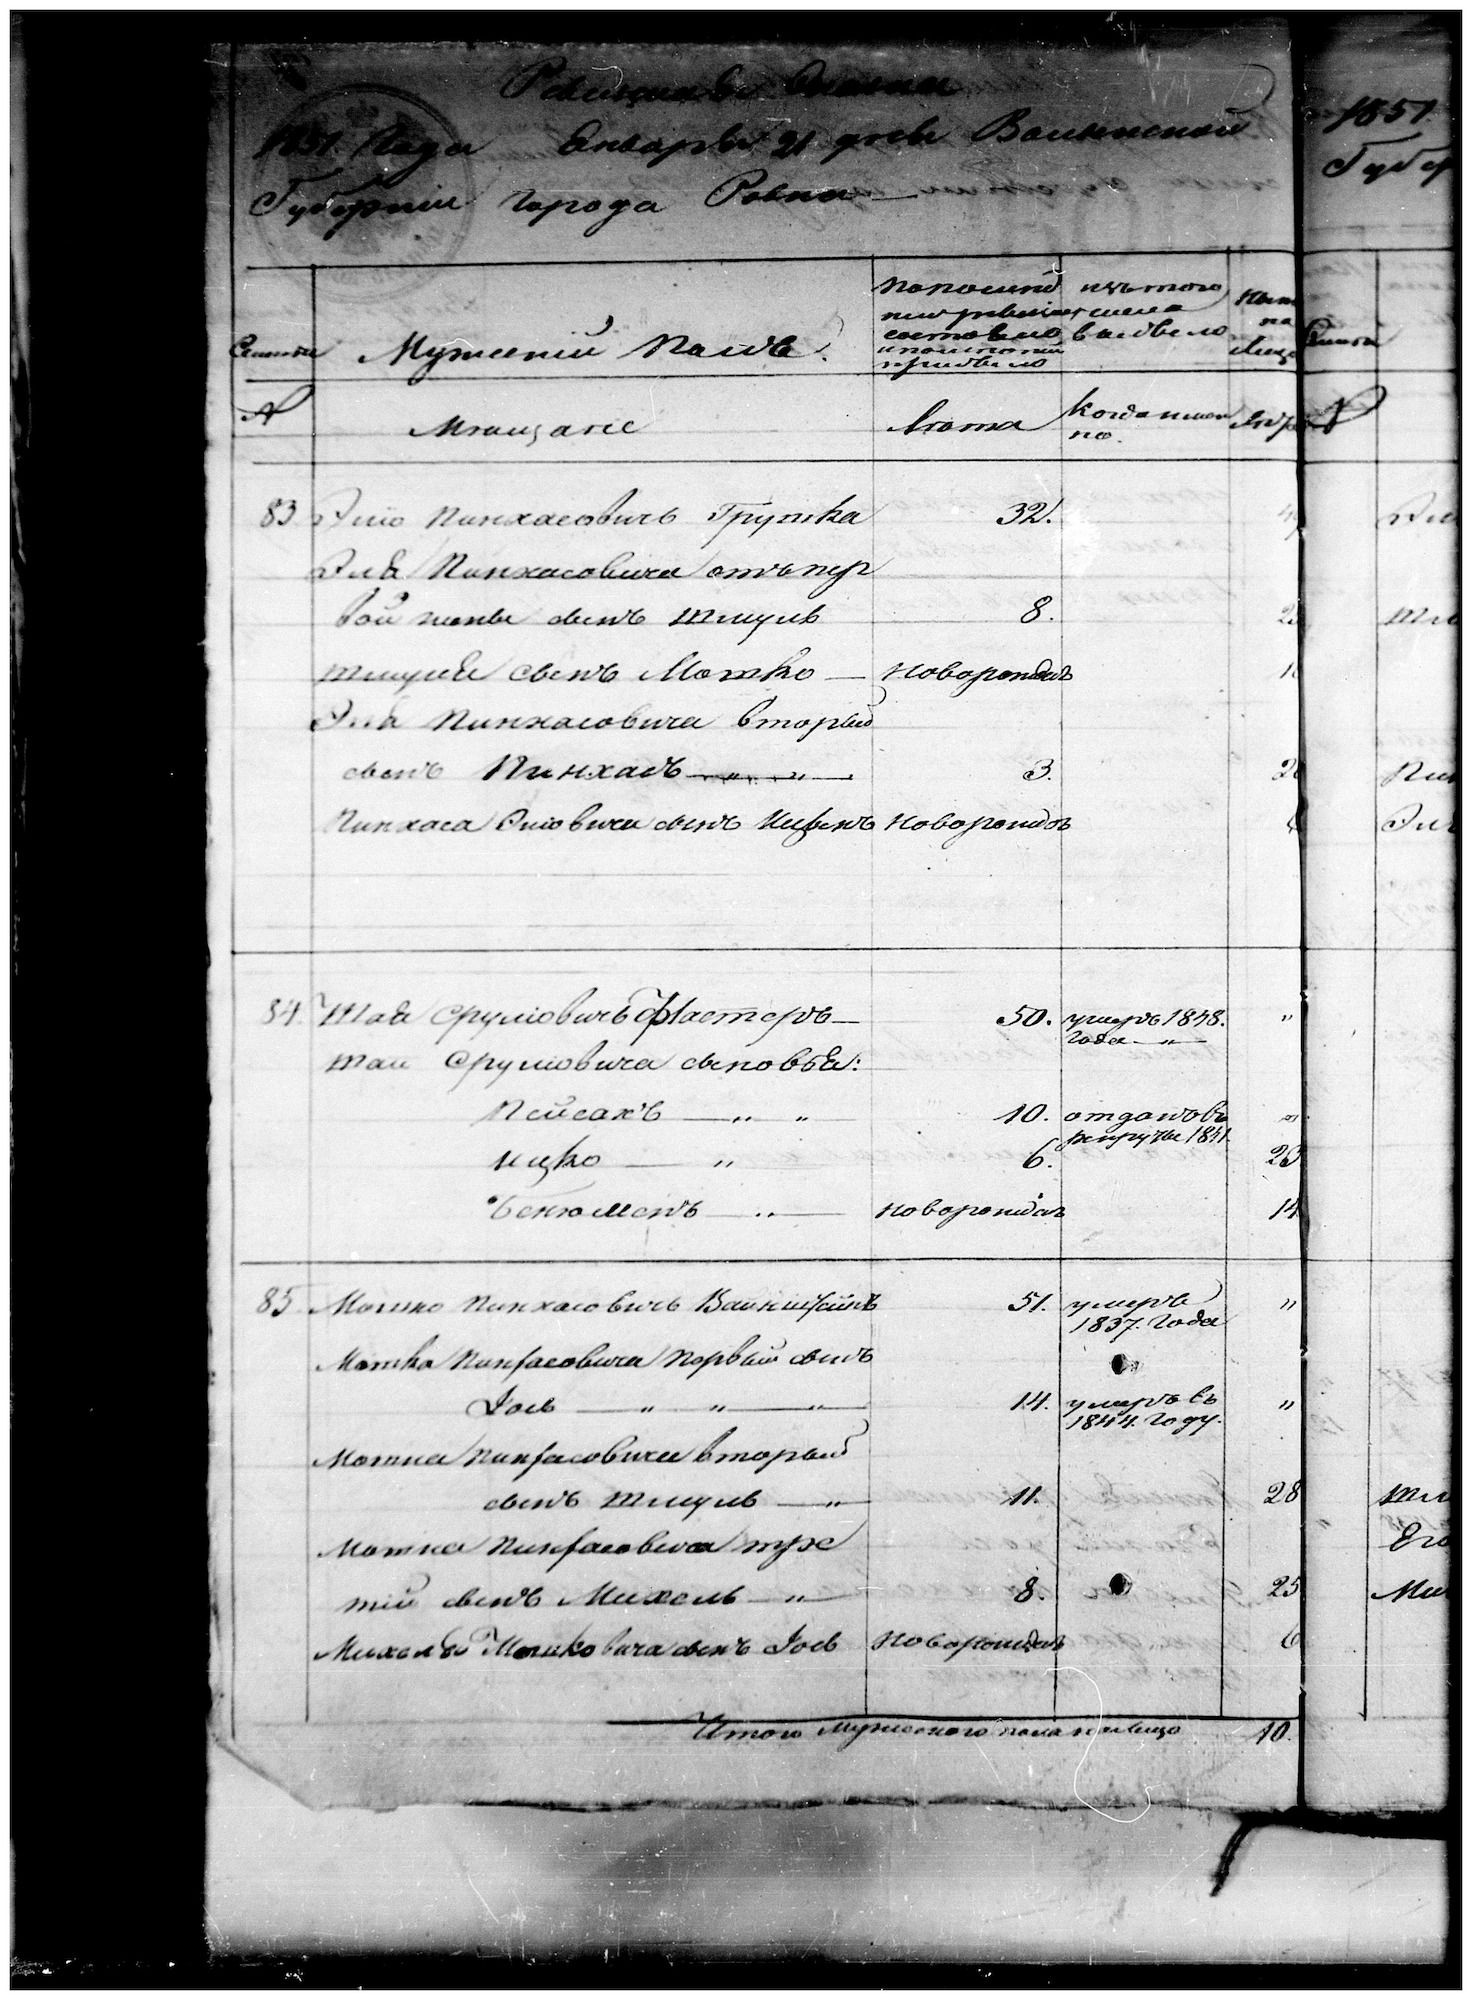 Ревизская Сказка
1851. Года Января 21 дня Волынской
Губерніи города Ровна
1851
Губер
Семьи
Мужескій Полъ.
По последней ревизіи состояло и после той прибыло
изъ того числа выбыло
Ныне на лицо
Семьи
№
Мещане
Лета
Когда именно.
Лета
№
83 Элю Пинхасовичъ Грушка 32.
Эля Пинхасовича отъ пер
вой жены сынъ Шмуль 8.
Шмуля сынъ Мошко новорожденъ
Эля Пинхасовича вторый
сынъ Пинхасъ 3. 2
Пинхаса Эліовича сынъ Ицыкъ новорожденъ
84. Шая Сруліовичъ Фластеръ 50. умеръ 1848. года "
Шаи Сруліовича сыновья:
Пейсахъ " " 10. отданъ въ рекруты 1841 "
Ицко " 6. 23
Бенюменъ " новорожденъ 14
85 Мошко Пинхасовичъ Вайнштейнъ 51. умеръ 1837. года "
Мошка Пинхасовича первый сынъ
Іось " " " 14. умеръ въ 1844. году. "
Мошка Пинхасовича вторый
сынъ Шмуль " 11. 28
Мошка Пинхасовича тре
тій сынъ Михель " 8. 25
Михеля Мошковича сынъ Іось новорожденъ 6
Итого мужескаго пола на лицо 10.